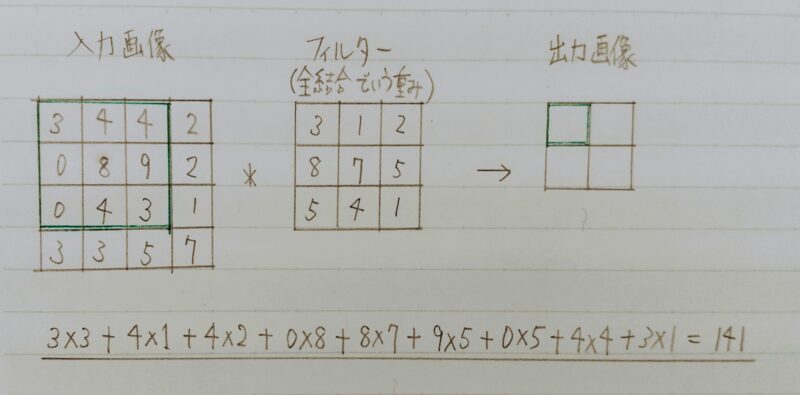 入力画像 フィルター 出力画像
(全結合でいう重み)
3 4 4 2 3 1 2
0 8 9 2 * 8 7 5 →
0 4 3 1 5 4 1
3 3 5 7
3×3 + 4×1 + 4×2 + 0×8 + 8×7 + 9×5 + 0×5 + 4×4 + 3×1 = 141